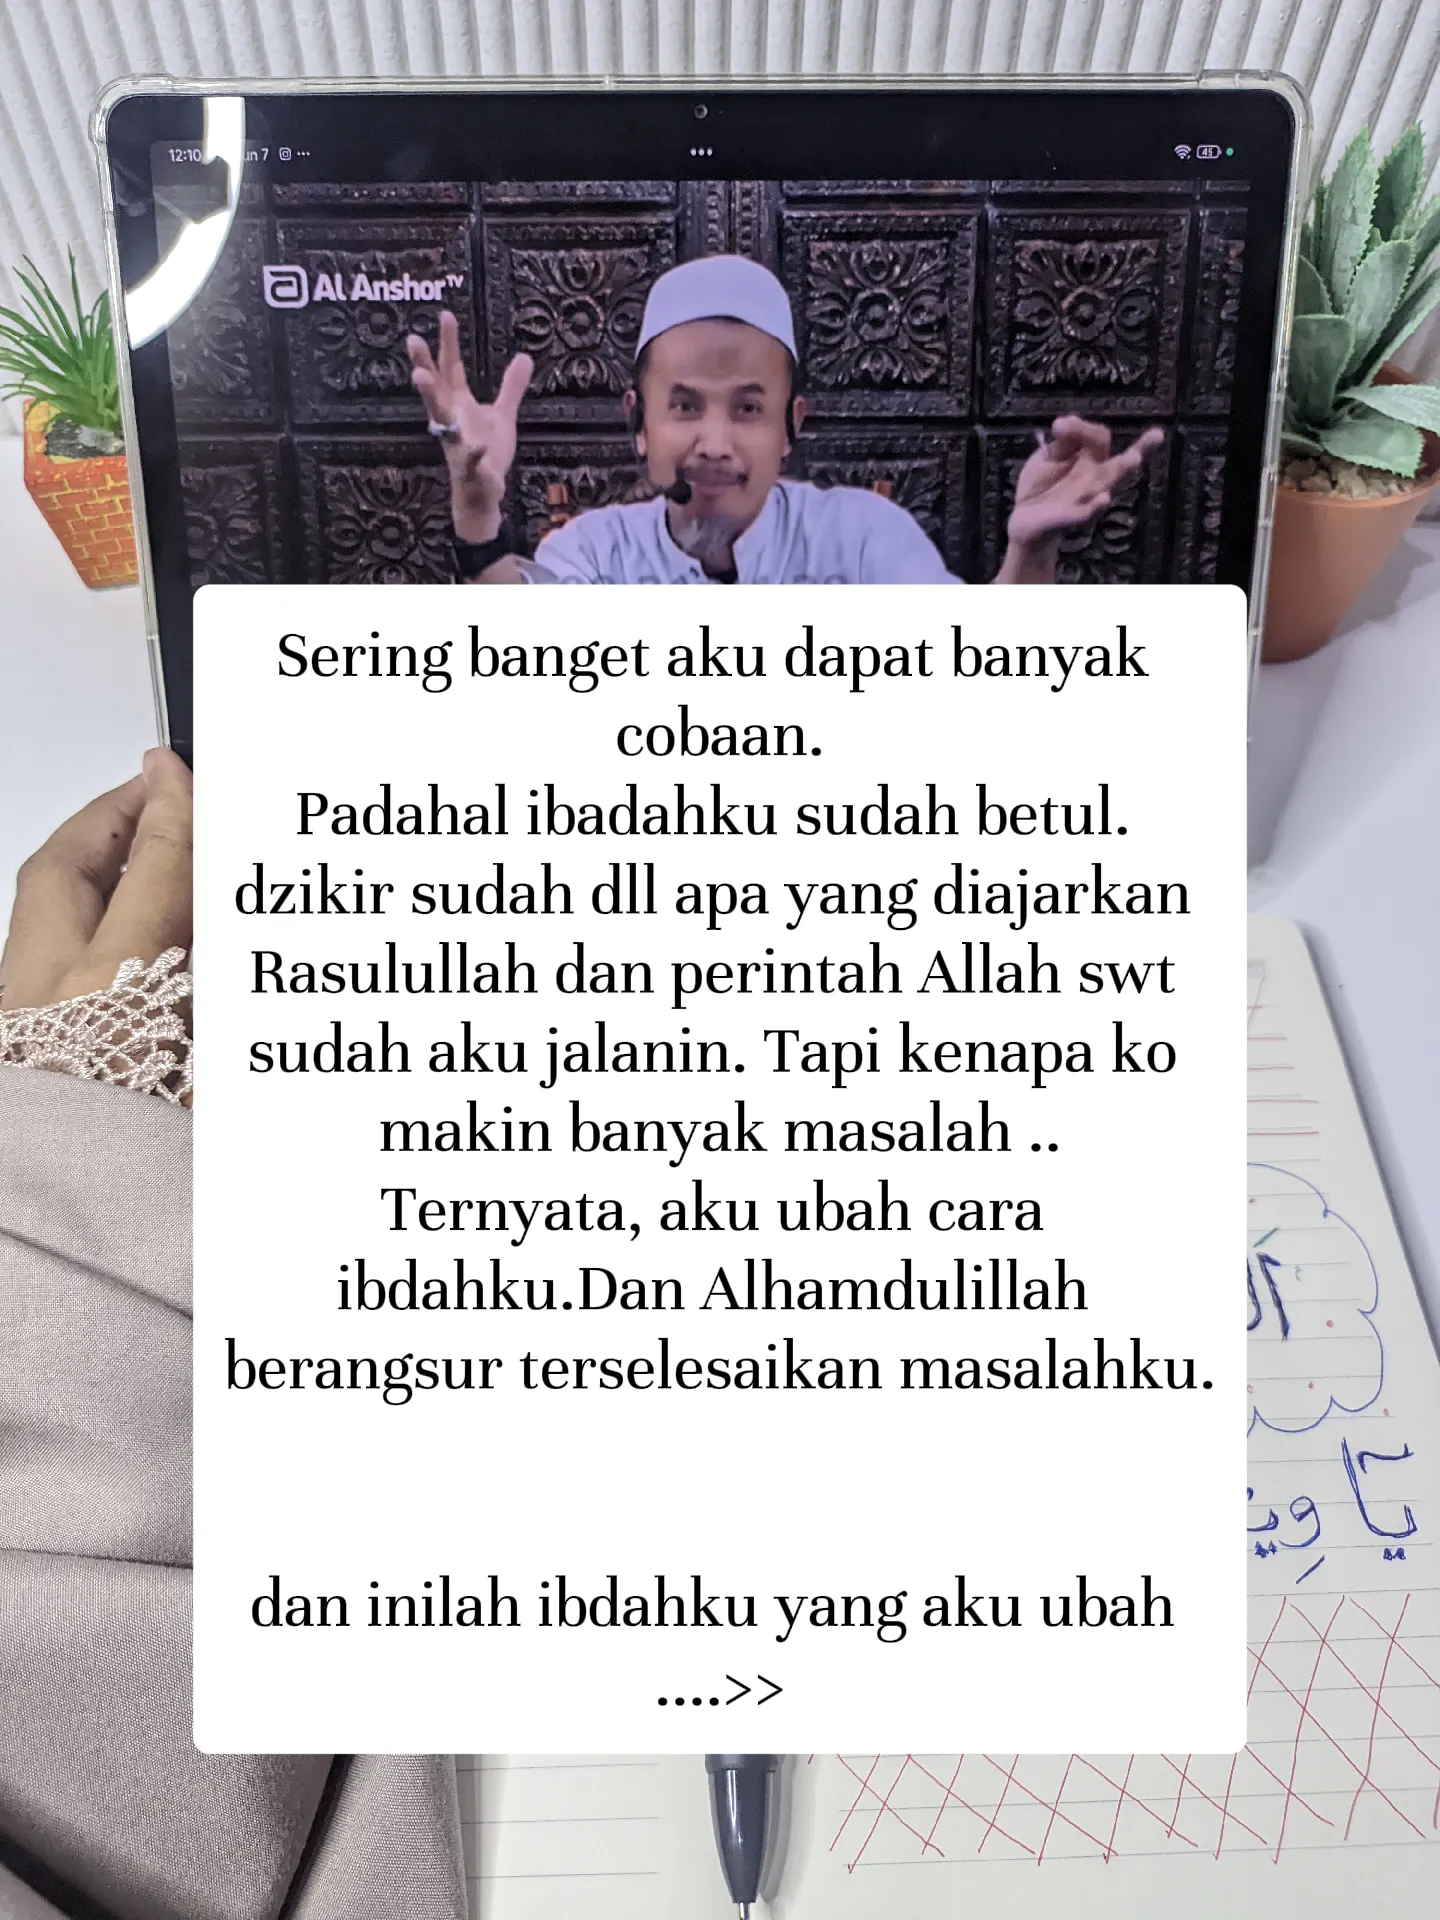 12:10
un 7
45
Al Anshor TV
Sering banget aku dapat banyak
cobaan.
Padahal ibadahku sudah betul.
dzikir sudah dll apa yang diajarkan
Rasulullah dan perintah Allah swt
sudah aku jalanin. Tapi kenapa ko
makin banyak masalah ..
Ternyata, aku ubah cara
ibdahku.Dan Alhamdulillah
berangsur terselesaikan masalahku.
dan inilah ibdahku yang aku ubah
....>>